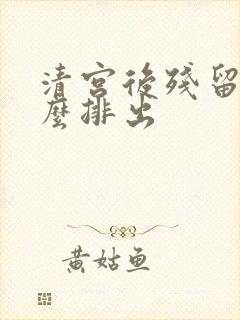 清宫後残留
麼排出
黄姑鱼